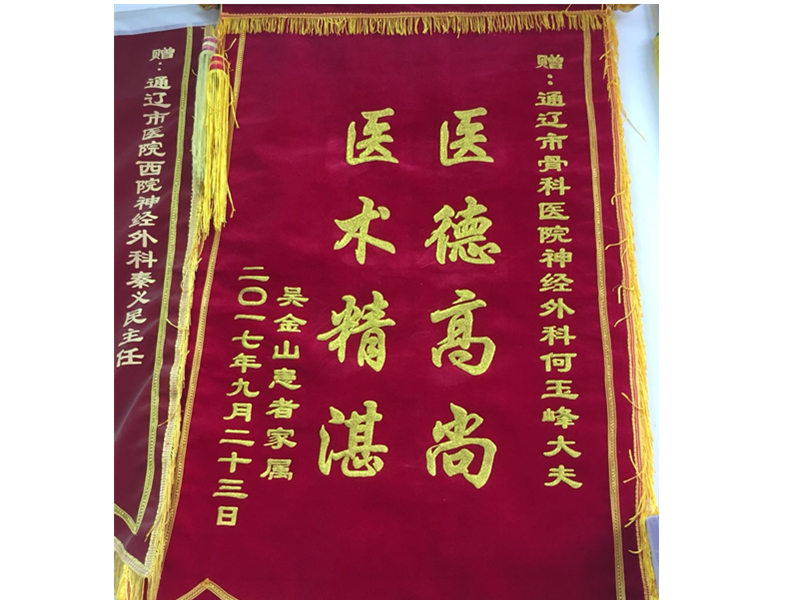 赠：通辽市骨科医院神经外科何玉峰大夫
医德高尚
医术精湛
吴金山患者家属
二〇一七年九月二十三日
赠：通辽市医院西院神经外科秦义民主任